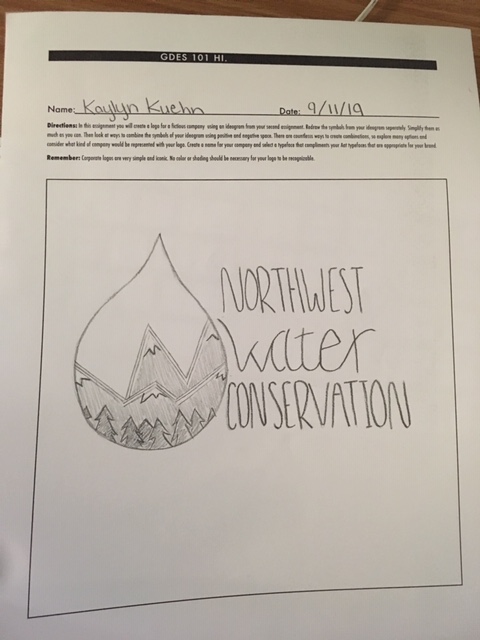 GDES 101 HI.
Name: Kaylyn Kuehn Date: 9/11/19
Directions: In this assignment you will create a logo for a fictious company using an ideogram from your second assignment. Redraw the symbols from your ideogram seperately. Simplify them as
much as you can. Then look at ways to combine the symbols of your ideogram using positive and negative space. There are countless ways to create combinations, so explore many options and
consider what kind of company would be represented with your logo. Create a name for your company and select a typeface that compliments your Aat typefaces that are appropriate for your brand.
Remember: Corporate logos are very simple and iconic. No color or shading should be necessary for your logo to be recognizable.
NORTHWEST
water
CONSERVATION